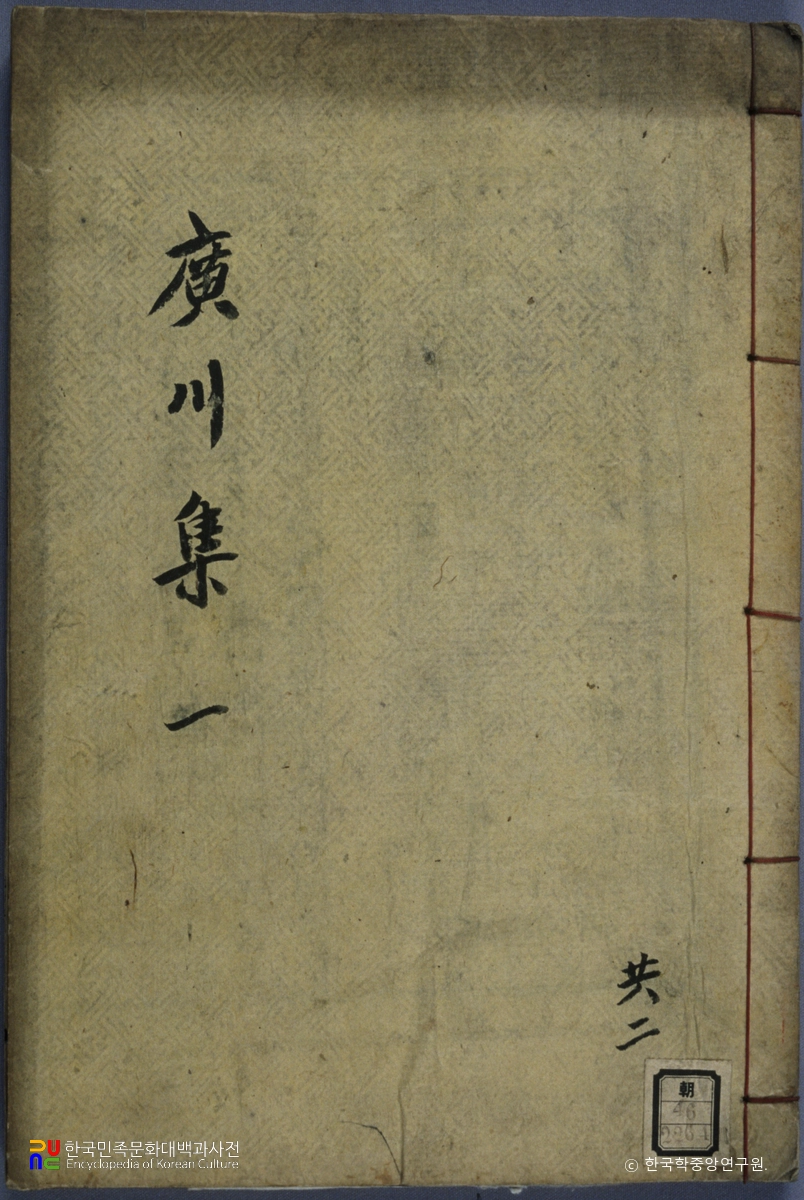 廣川集 一
共二
朝
46
한국민족문화대백과사전
Encyclopedia of Korean Culture
© 한국학중앙연구원.